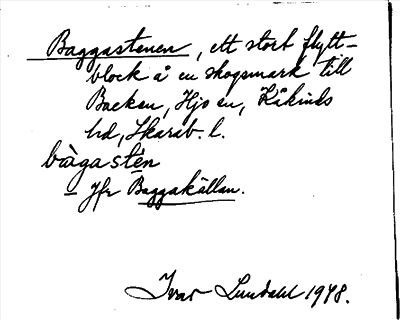 Baggastenen, ett stort flytt-
block å en skogsmark till
Backen, Hjo sn, Kåkinds
hd, Skarab. l.
bàgastén
– Jfr Baggakällan.
Ivar Lundahl 1948.